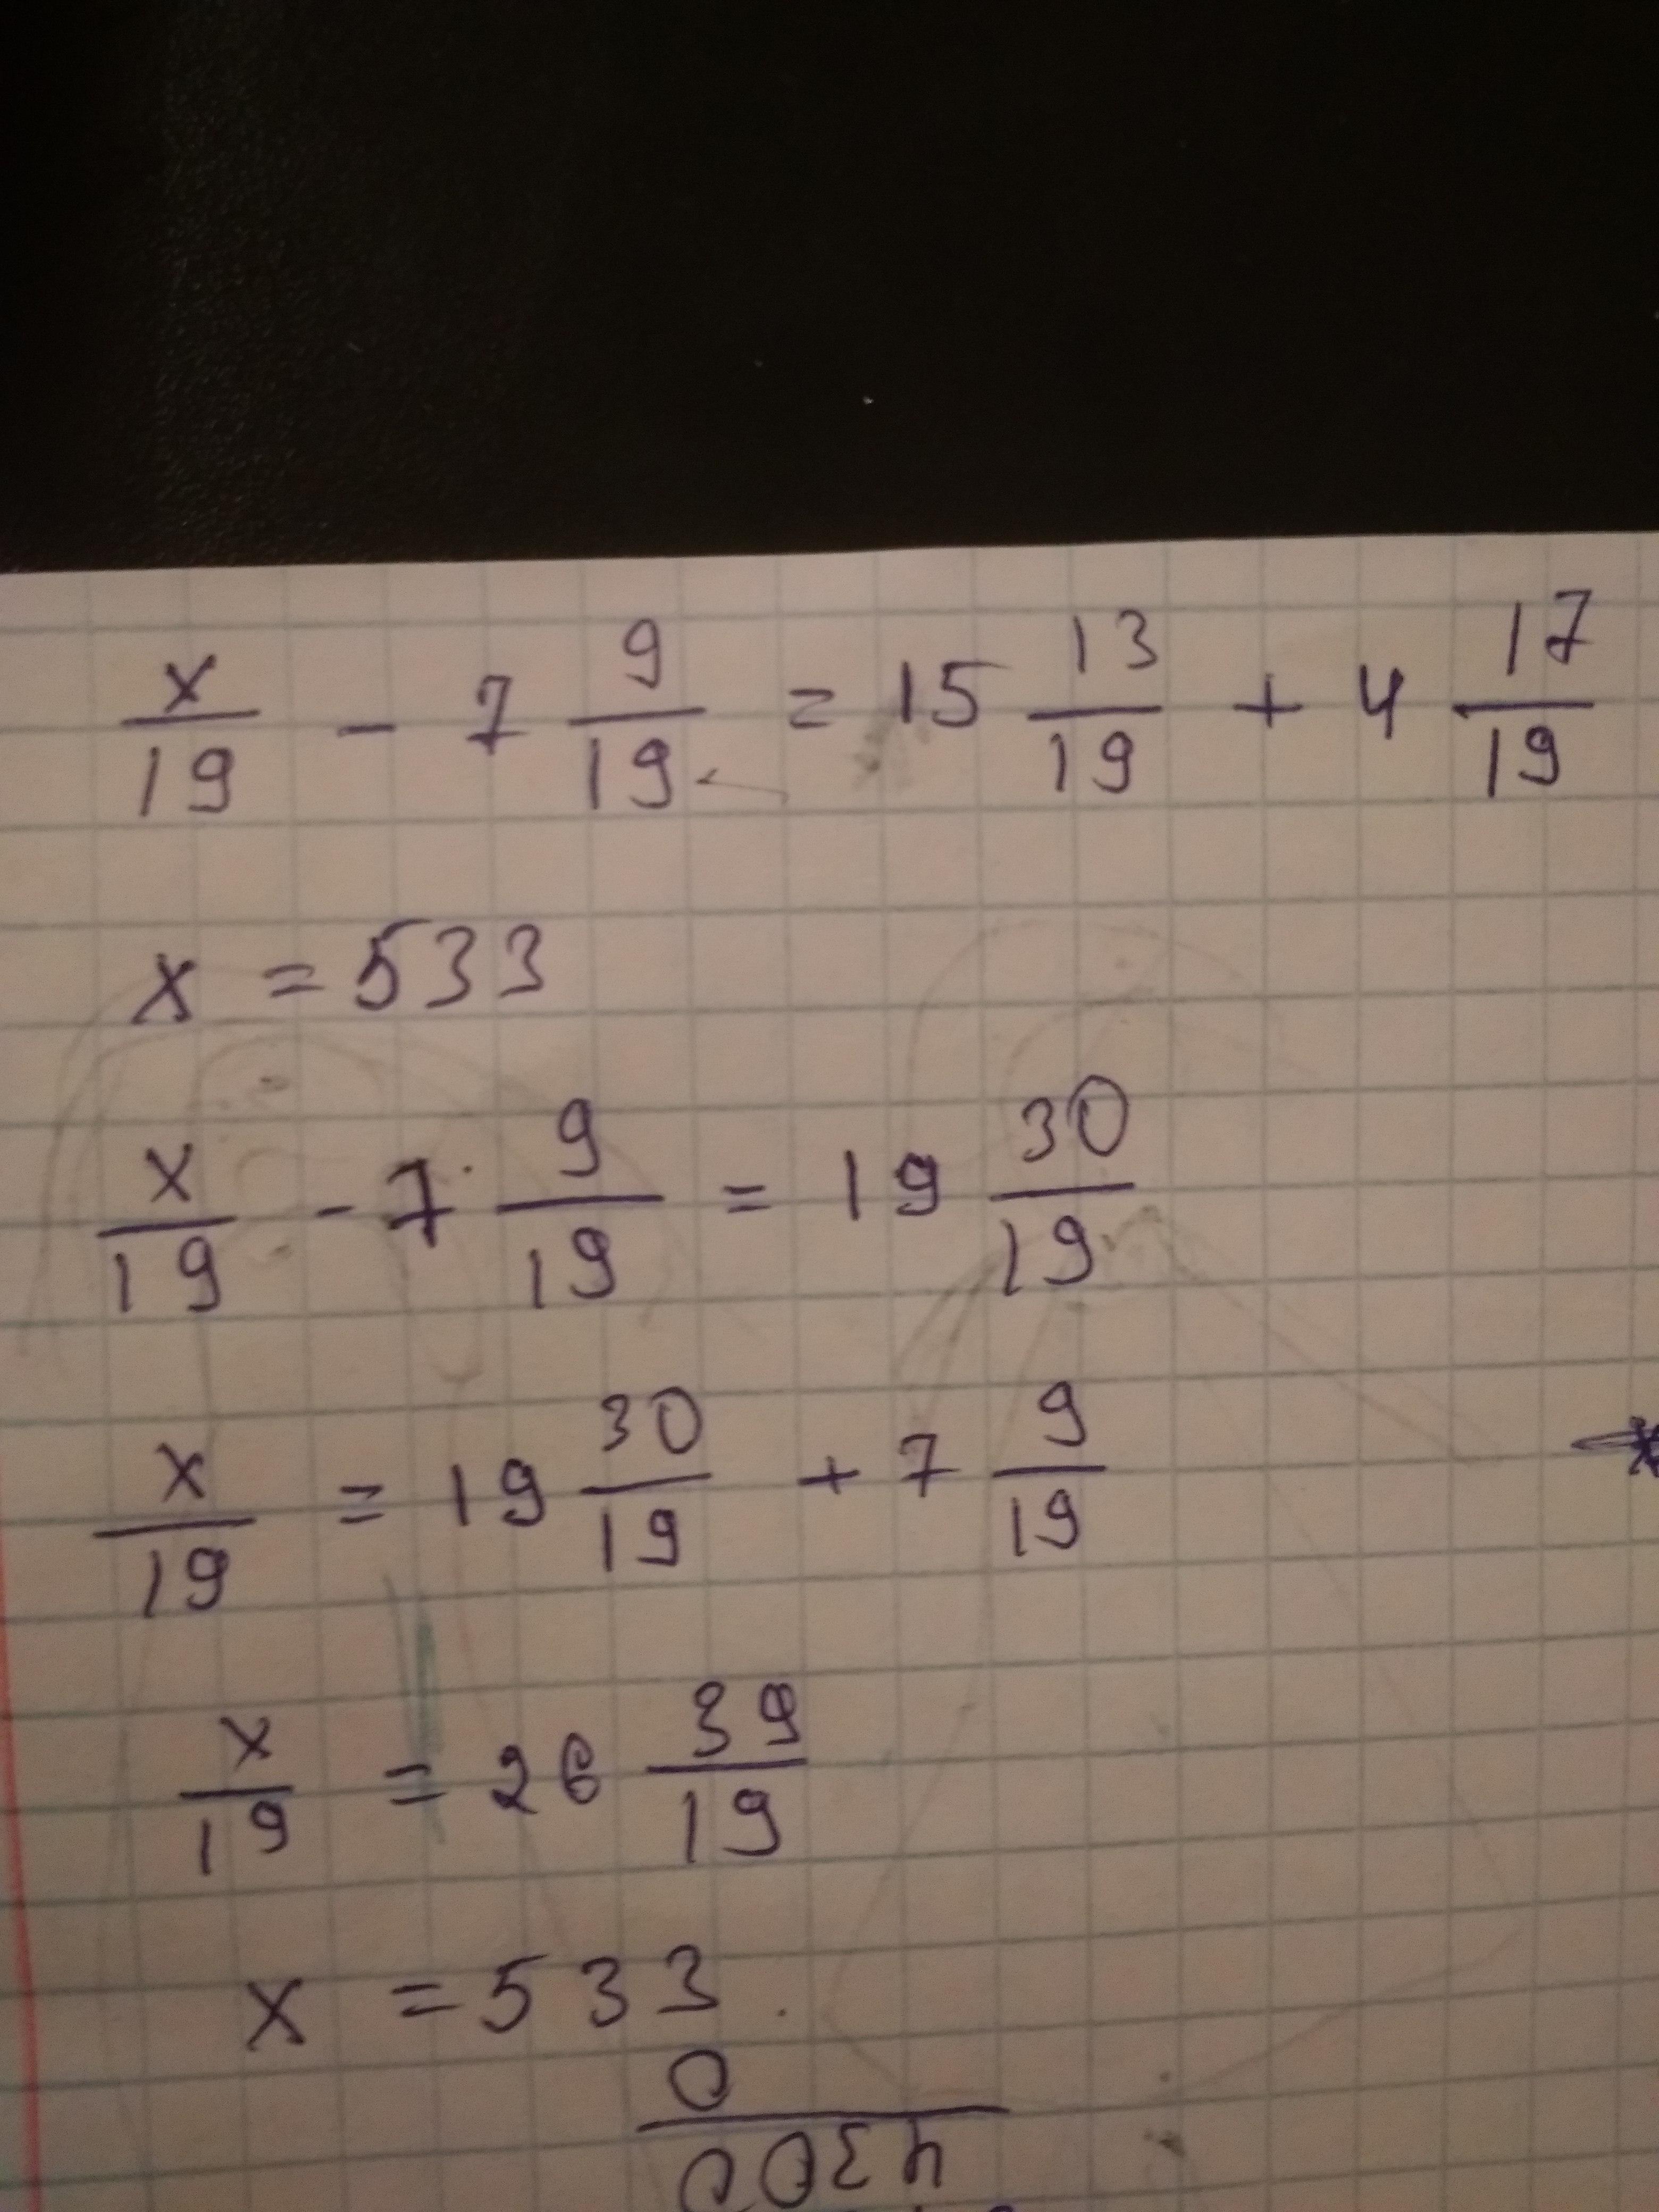 x/19 - 7 9/19 = 15 13/19 + 4 17/19
x = 533
x/19 - 7 9/19 = 19 30/19
x/19 = 19 30/19 + 7 9/19
x/19 = 26 39/19
x = 533
0
4300